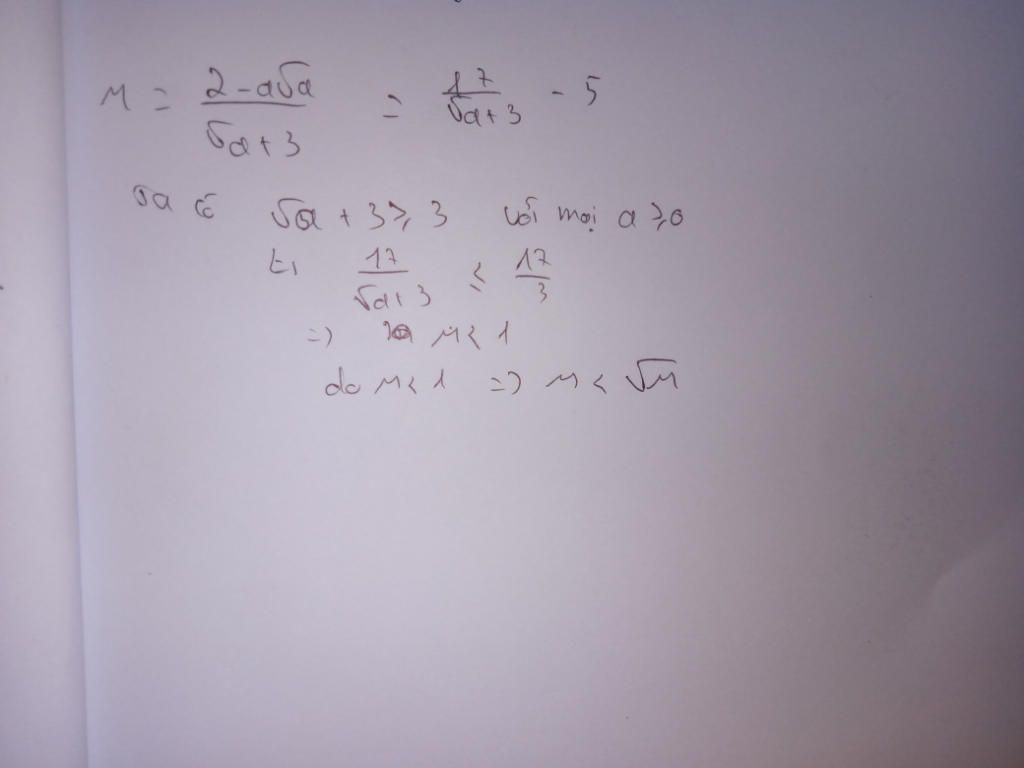 M = (2 - a√a)/(√a + 3) = 17/(√a + 3) - 5
Ta có √a + 3 ≥ 3 với mọi a ≥ 0
17/(√a + 3) ≤ 17/3
=> M < 1
do M < 1 => M < √M